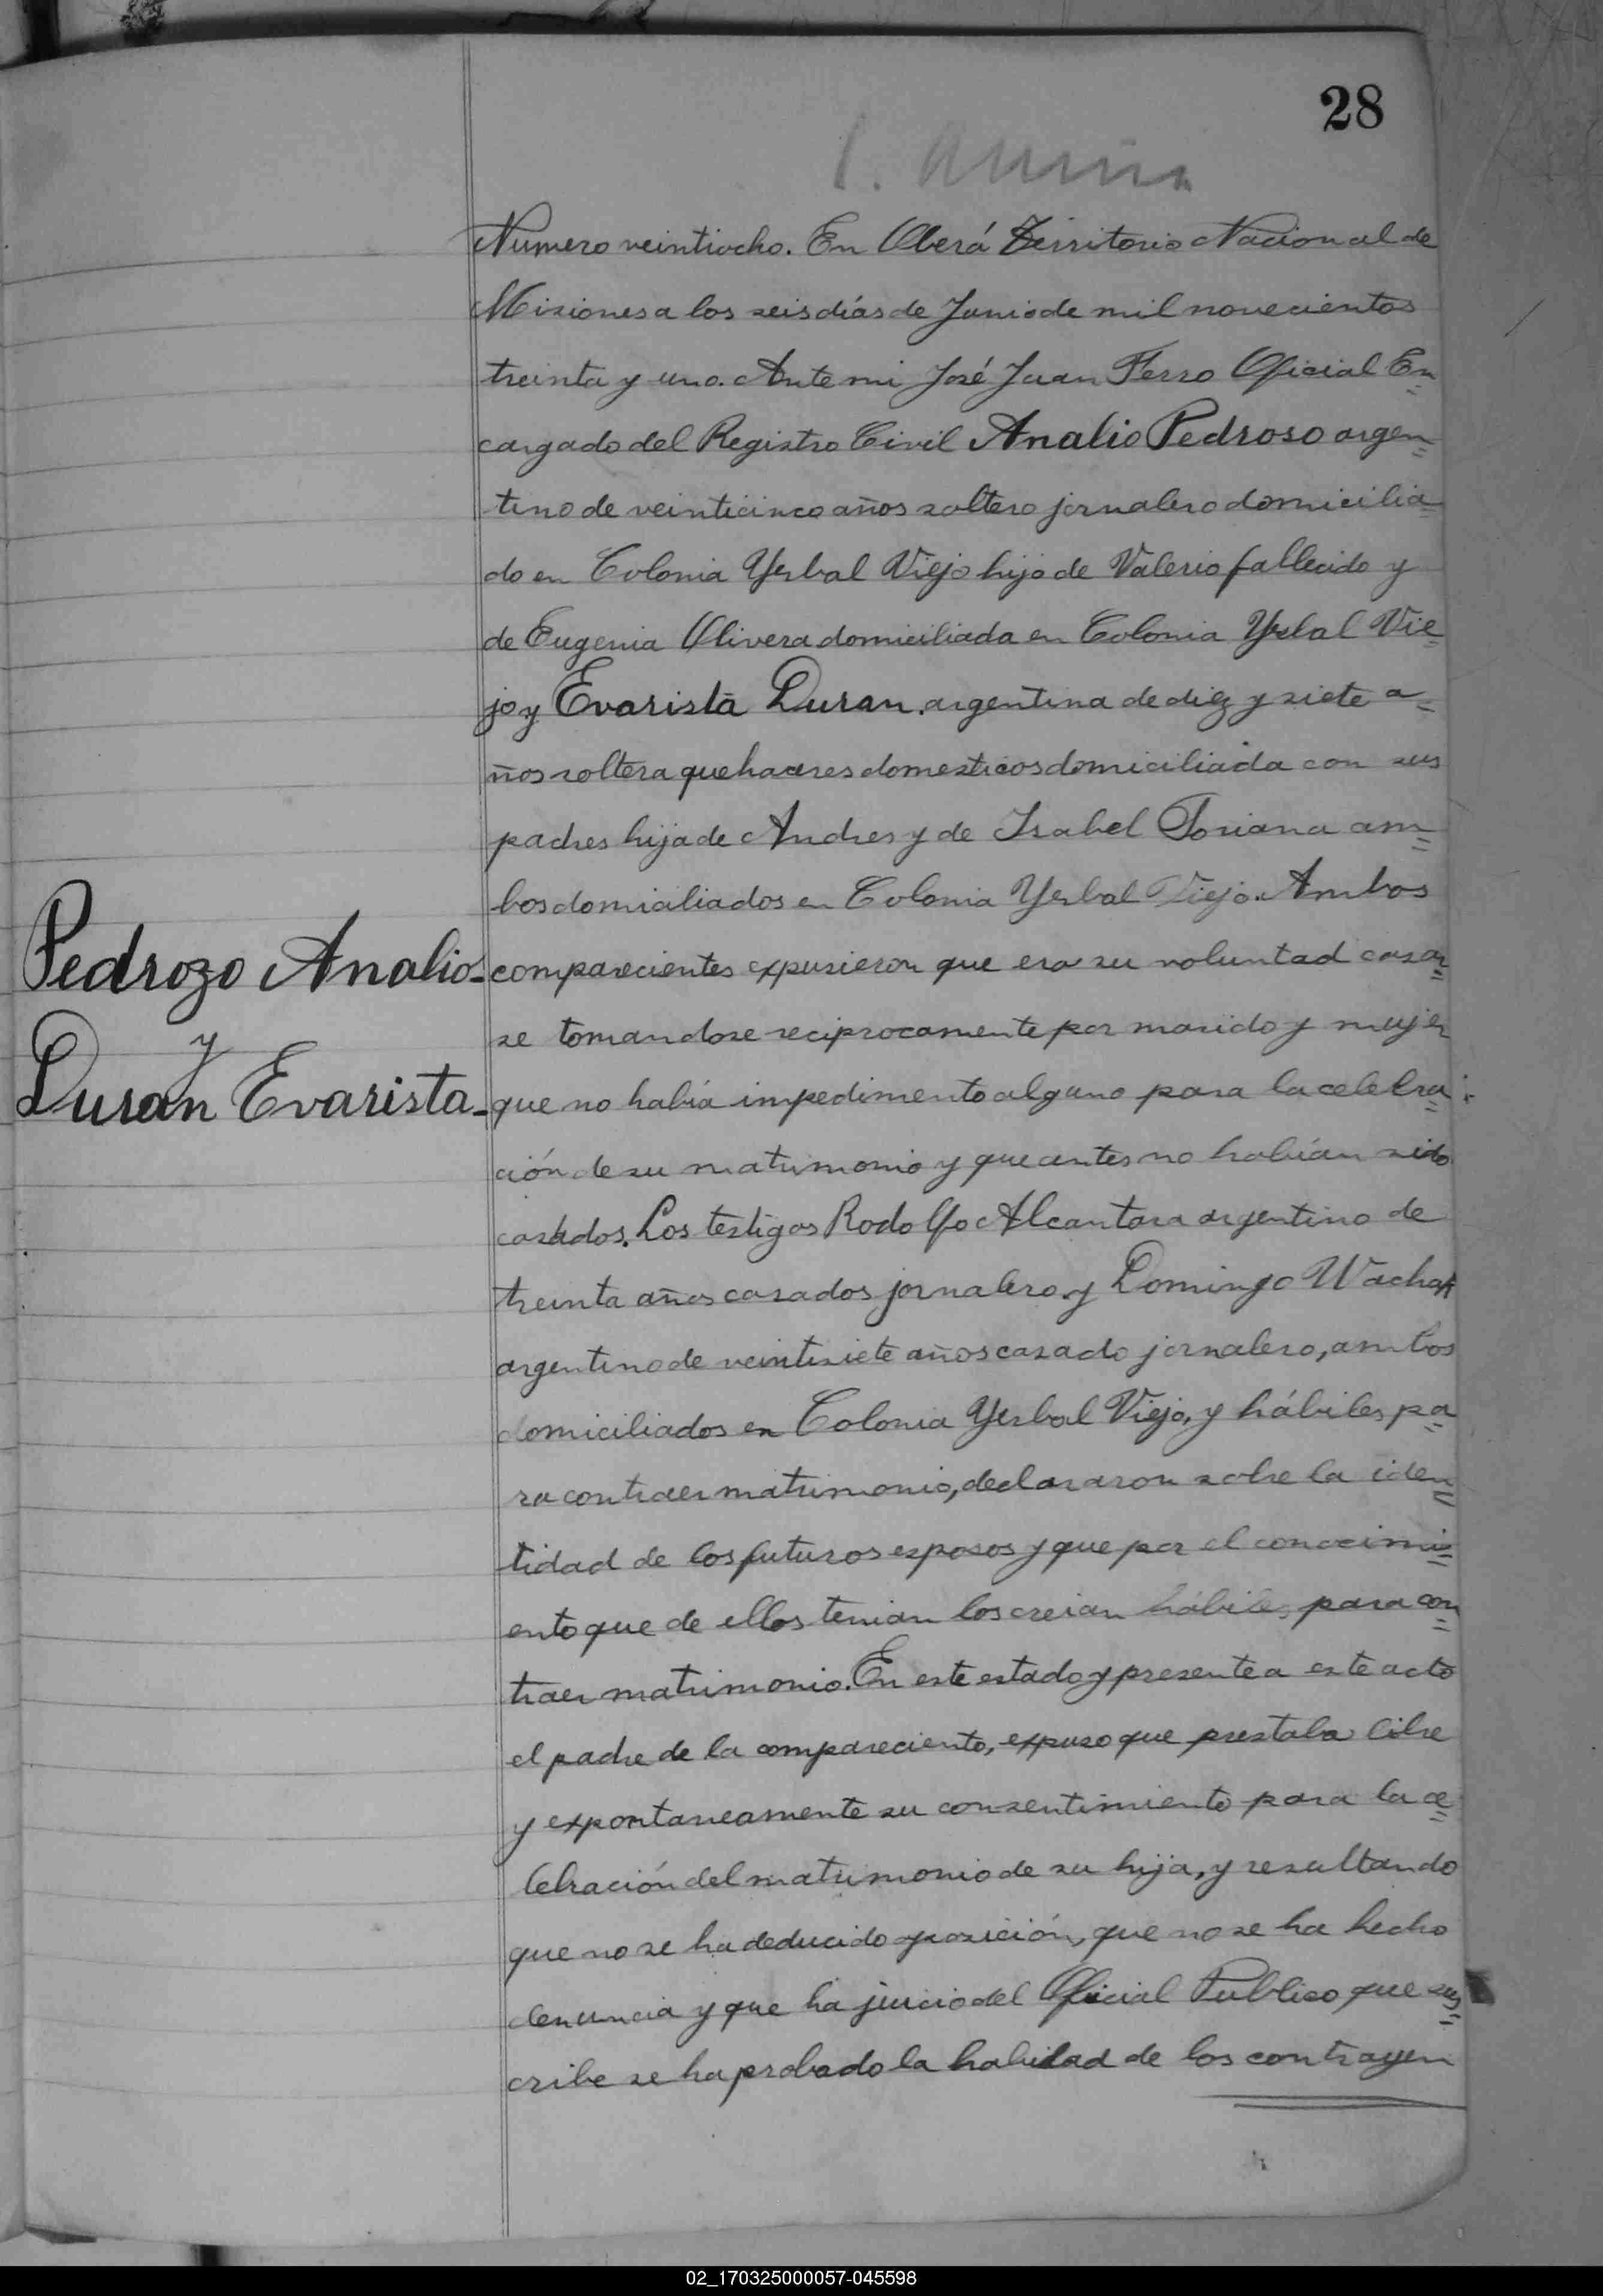 28
Numero veintiocho. En Oberá Territorio Nacional de
Misiones a los seis días de Junio de mil novecientos
treinta y uno. Ante mi José Juan Ferro Oficial En=
cargado del Registro Civil Analio Pedroso argen=
tino de veinticinco años soltero jornalero domicilia=
do en Colonia Yerbal Viejo hijo de Valerio fallecido y
de Eugenia Olivera domiciliada en Colonia Yerbal Vie=
jo y Evarista Duran argentina de diez y siete a=
ños soltera quehaceres domesticos domiciliada con sus
padres hija de Andres y de Isabel Soriana am=
bos domiciliados en Colonia Yerbal Viejo. Ambos
Pedrozo Analio-
y
Duran Evarista-
comparecientes expusieron que era su voluntad casar=
se tomandose reciprocamente por marido y mujer
que no había impedimento alguno para la celebra=
ción de su matrimonio y que antes no habían sido
casados. Los testigos Rodolfo Alcantara argentino de
treinta años casados jornalero y Domingo
argentino de veintisiete años casado jornalero, ambos
domiciliados en Colonia Yerbal Viejo, y hábiles pa=
ra contraer matrimonio, declararon sobre la iden=
tidad de los futuros esposos y que por el conocimi=
ento que de ellos tenian los creian hábiles para con=
traer matrimonio. En este estado y presente a este acto
el padre de la compareciento, expuso que prestaba libre
y expontaneamente su consentimiento para la ce=
lebración del matrimonio de su hija, y resultando
que no se ha deducido oposición, que no se ha hecho
denuncia y que ha juicio del Oficial Publico que sus=
cribe se ha probado la habilidad de los contrayen
02_170325000057-045598